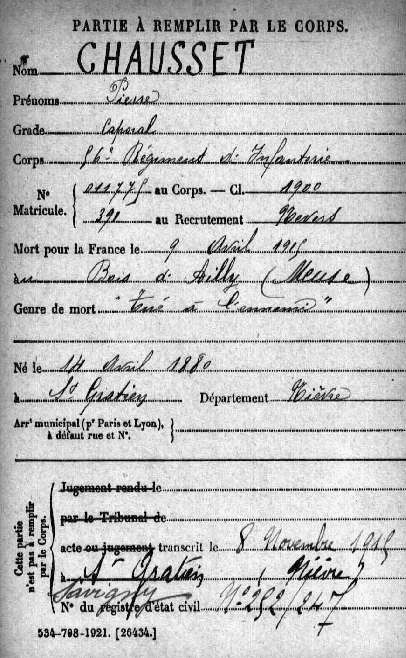 PARTIE À REMPLIR PAR LE CORPS.
Nom CHAUSSET
Prénoms Pierre
Grade Caporal
Corps 56e Régiment d'Infanterie
No Matricule. { 011775 au Corps. — Cl. 1900
391 au Recrutement Nevers
Mort pour la France le 9 Avril 1915
au Bois d'Ailly (Meuse)
Genre de mort "Tué à l'ennemi"
Né le 14 Avril 1880
à St Gratien Département Nièvre
Arrt municipal (pr Paris et Lyon), à défaut rue et No.
Cette partie n'est pas à remplir par le Corps.
Jugement rendu le
par le Tribunal de
acte ou jugement transcrit le 8 Novembre 1915
à St Gratien, "Nièvre"
Savigny
No du registre d'état civil No 252/247
534-708-1921. [26434.]